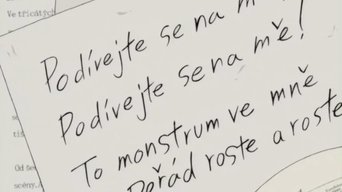 Ve třicátých
Podívejte se na mě!
Podívejte se na mě!
To monstrum ve mně
Pořád roste a roste
scény.